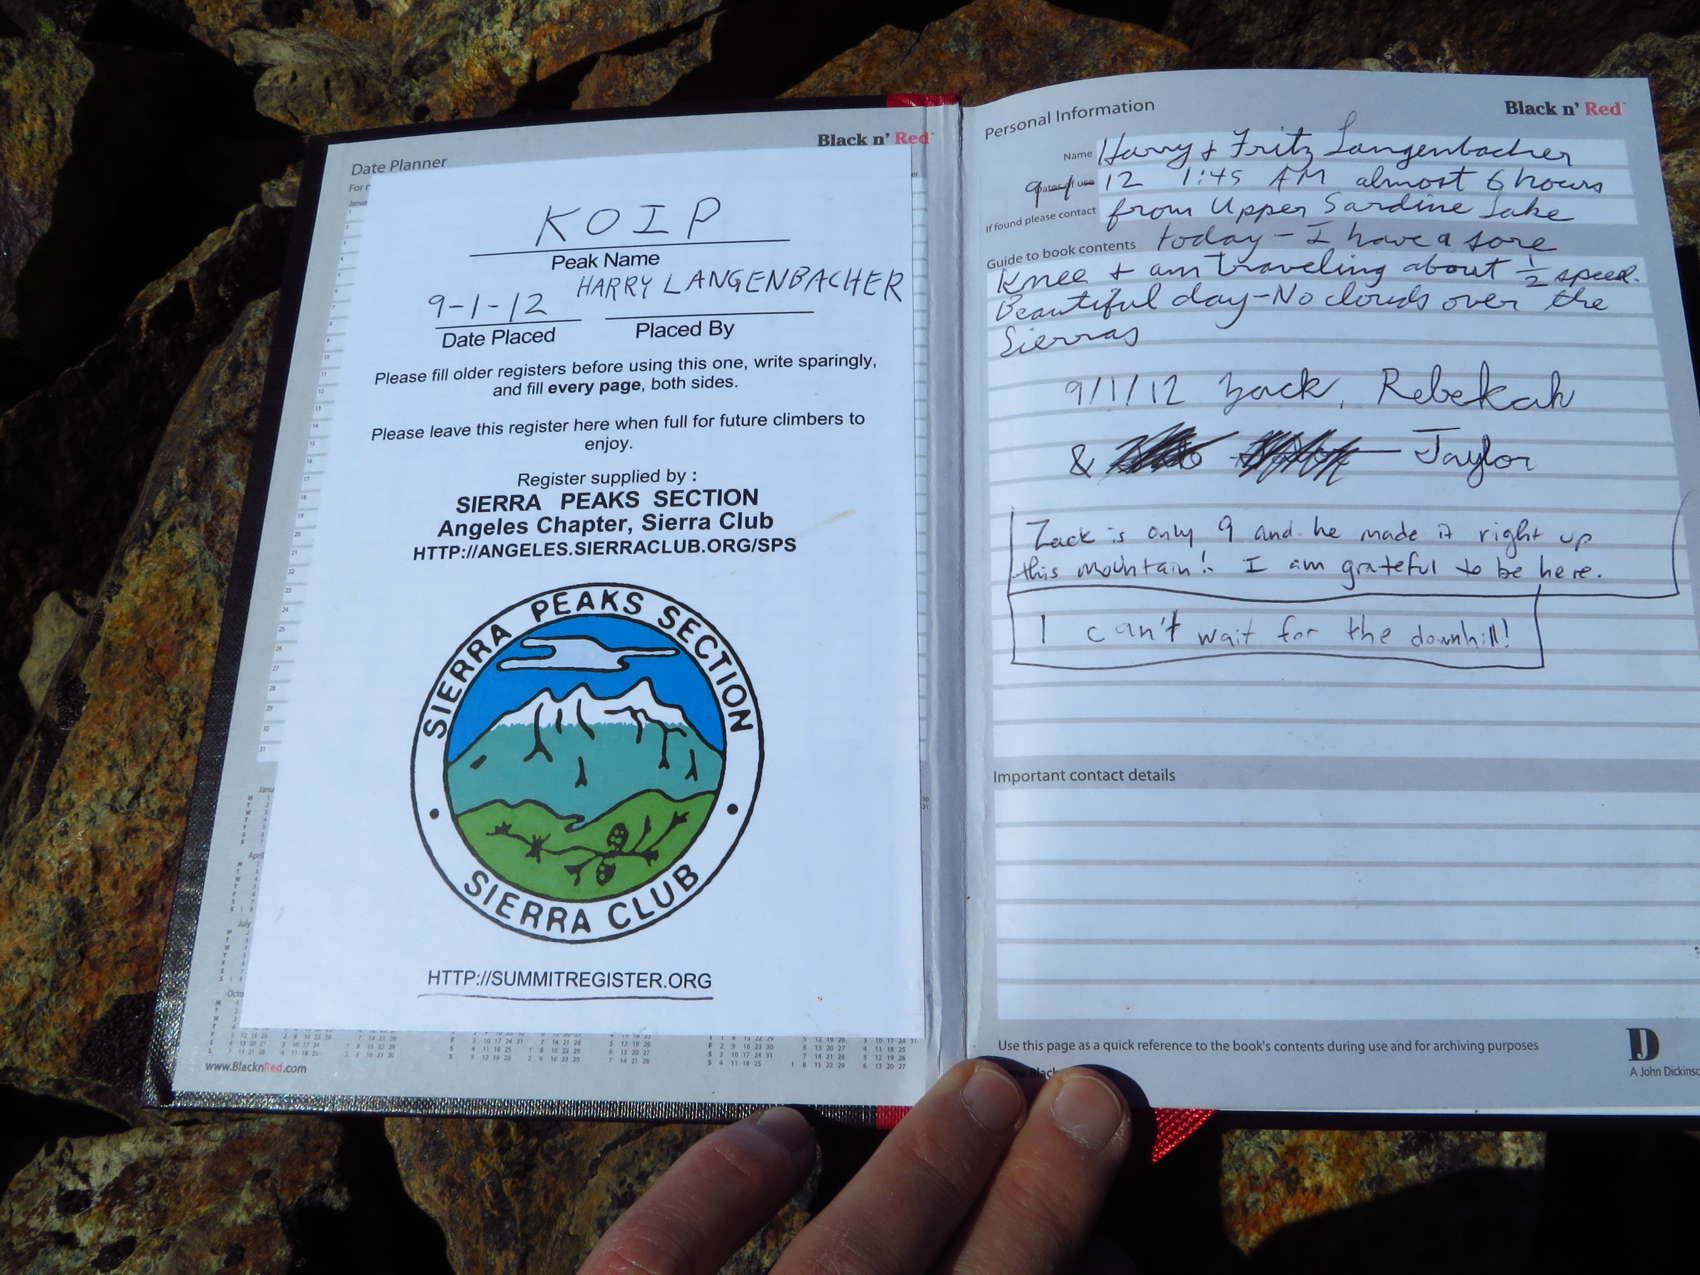 Date Planner
Black n' Red
KOIP
Peak Name
9-1-12 HARRY LANGENBACHER
Date Placed Placed By
Please fill older registers before using this one, write sparingly,
and fill every page, both sides.
Please leave this register here when full for future climbers to
enjoy.
Register supplied by :
SIERRA PEAKS SECTION
Angeles Chapter, Sierra Club
HTTP://ANGELES.SIERRACLUB.ORG/SPS
SIERRA PEAKS SECTION
SIERRA CLUB
HTTP://SUMMITREGISTER.ORG
www.BlacknRed.com
Personal Information
Black n' Red
Name Harry & Fritz Langenbacher
12 1:45 AM almost 6 hours
If found please contact from Upper Sardine Lake
Guide to book contents today - I have a sore
Knee & am traveling about 1/2 speed.
Beautiful day - No clouds over the
Sierras
9/1/12 Zack, Rebekah
& Taylor
Zack is only 9 and he made it right up
this mountain! I am grateful to be here.
I can't wait for the downhill!
Important contact details
Use this page as a quick reference to the book's contents during use and for archiving purposes